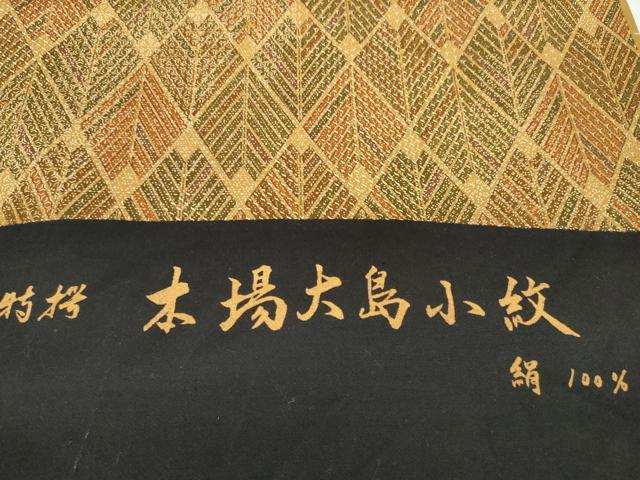 特撰 本場大島小紋
絹 100%